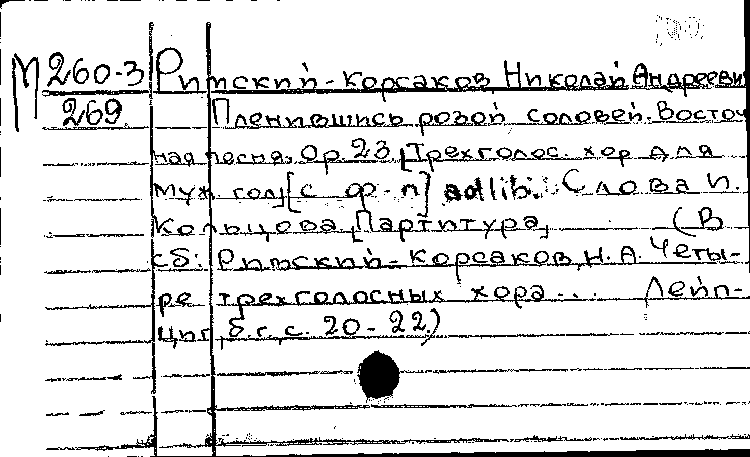 М 260-3 Римский-Корсаков, Николай Андреевич
269 Пленившись розой соловей. Восточ
ная песня. Op. 23. [Трехголос. хор для
муж. гол.] [с ф-п] ad lib. Слова
Кольцова, [Партитура, (В
сб: Римский-Корсаков, Н. А. Четы-
ре трехголосных хора... Лейп-
циг, б. г., с. 20-22.)